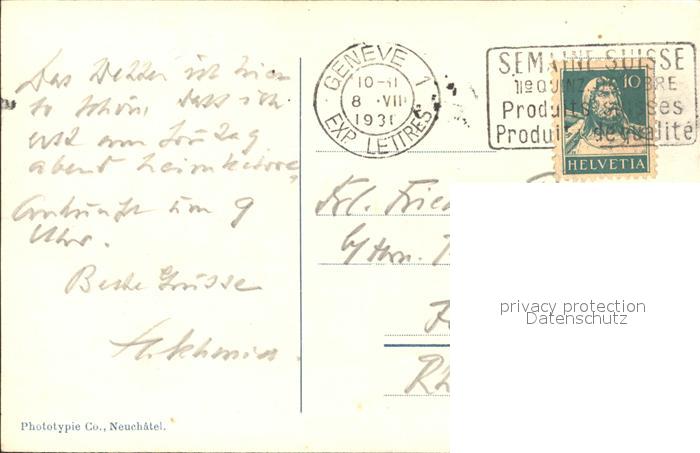 Das Wetter ist hier
so schön, dass ich
erst am Sonntag
abend heimkehre,
Ankunft um 9
Uhr.
Beste Grüsse
GENÈVE 1
10-11
8. VIII
1931
EXP. LETTRES
SEMAINE SUISSE
Produits suisses
Produits de qualité
10
HELVETIA
Frl.
b/Hrn.
privacy protection
Datenschutz
Phototypie Co., Neuchâtel.